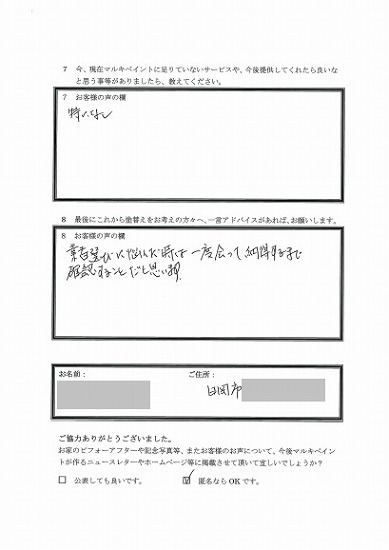 7 今、現在マルキペイントに足りていないサービスや、今後提供してくれたら良いな
と思う事等がありましたら、教えてください。
7 お客様の声の欄
特になし
8 最後にこれから塗替えをお考えの方々へ、一言アドバイスがあれば、お願いします。
8 お客様の声の欄
業者選びに悩んだ時は一度会って、納得するまで
確認することだと思います。
お名前：
ご住所：
日田市
ご協力ありがとうございました。
お家のビフォーアフターや記念写真等、またお客様のお声について、今後マルキペイン
トが作るニュースレターやホームページ等に掲載させて頂いて宜しいでしょうか？
□ 公表しても良いです。 ☑ 匿名ならOKです。